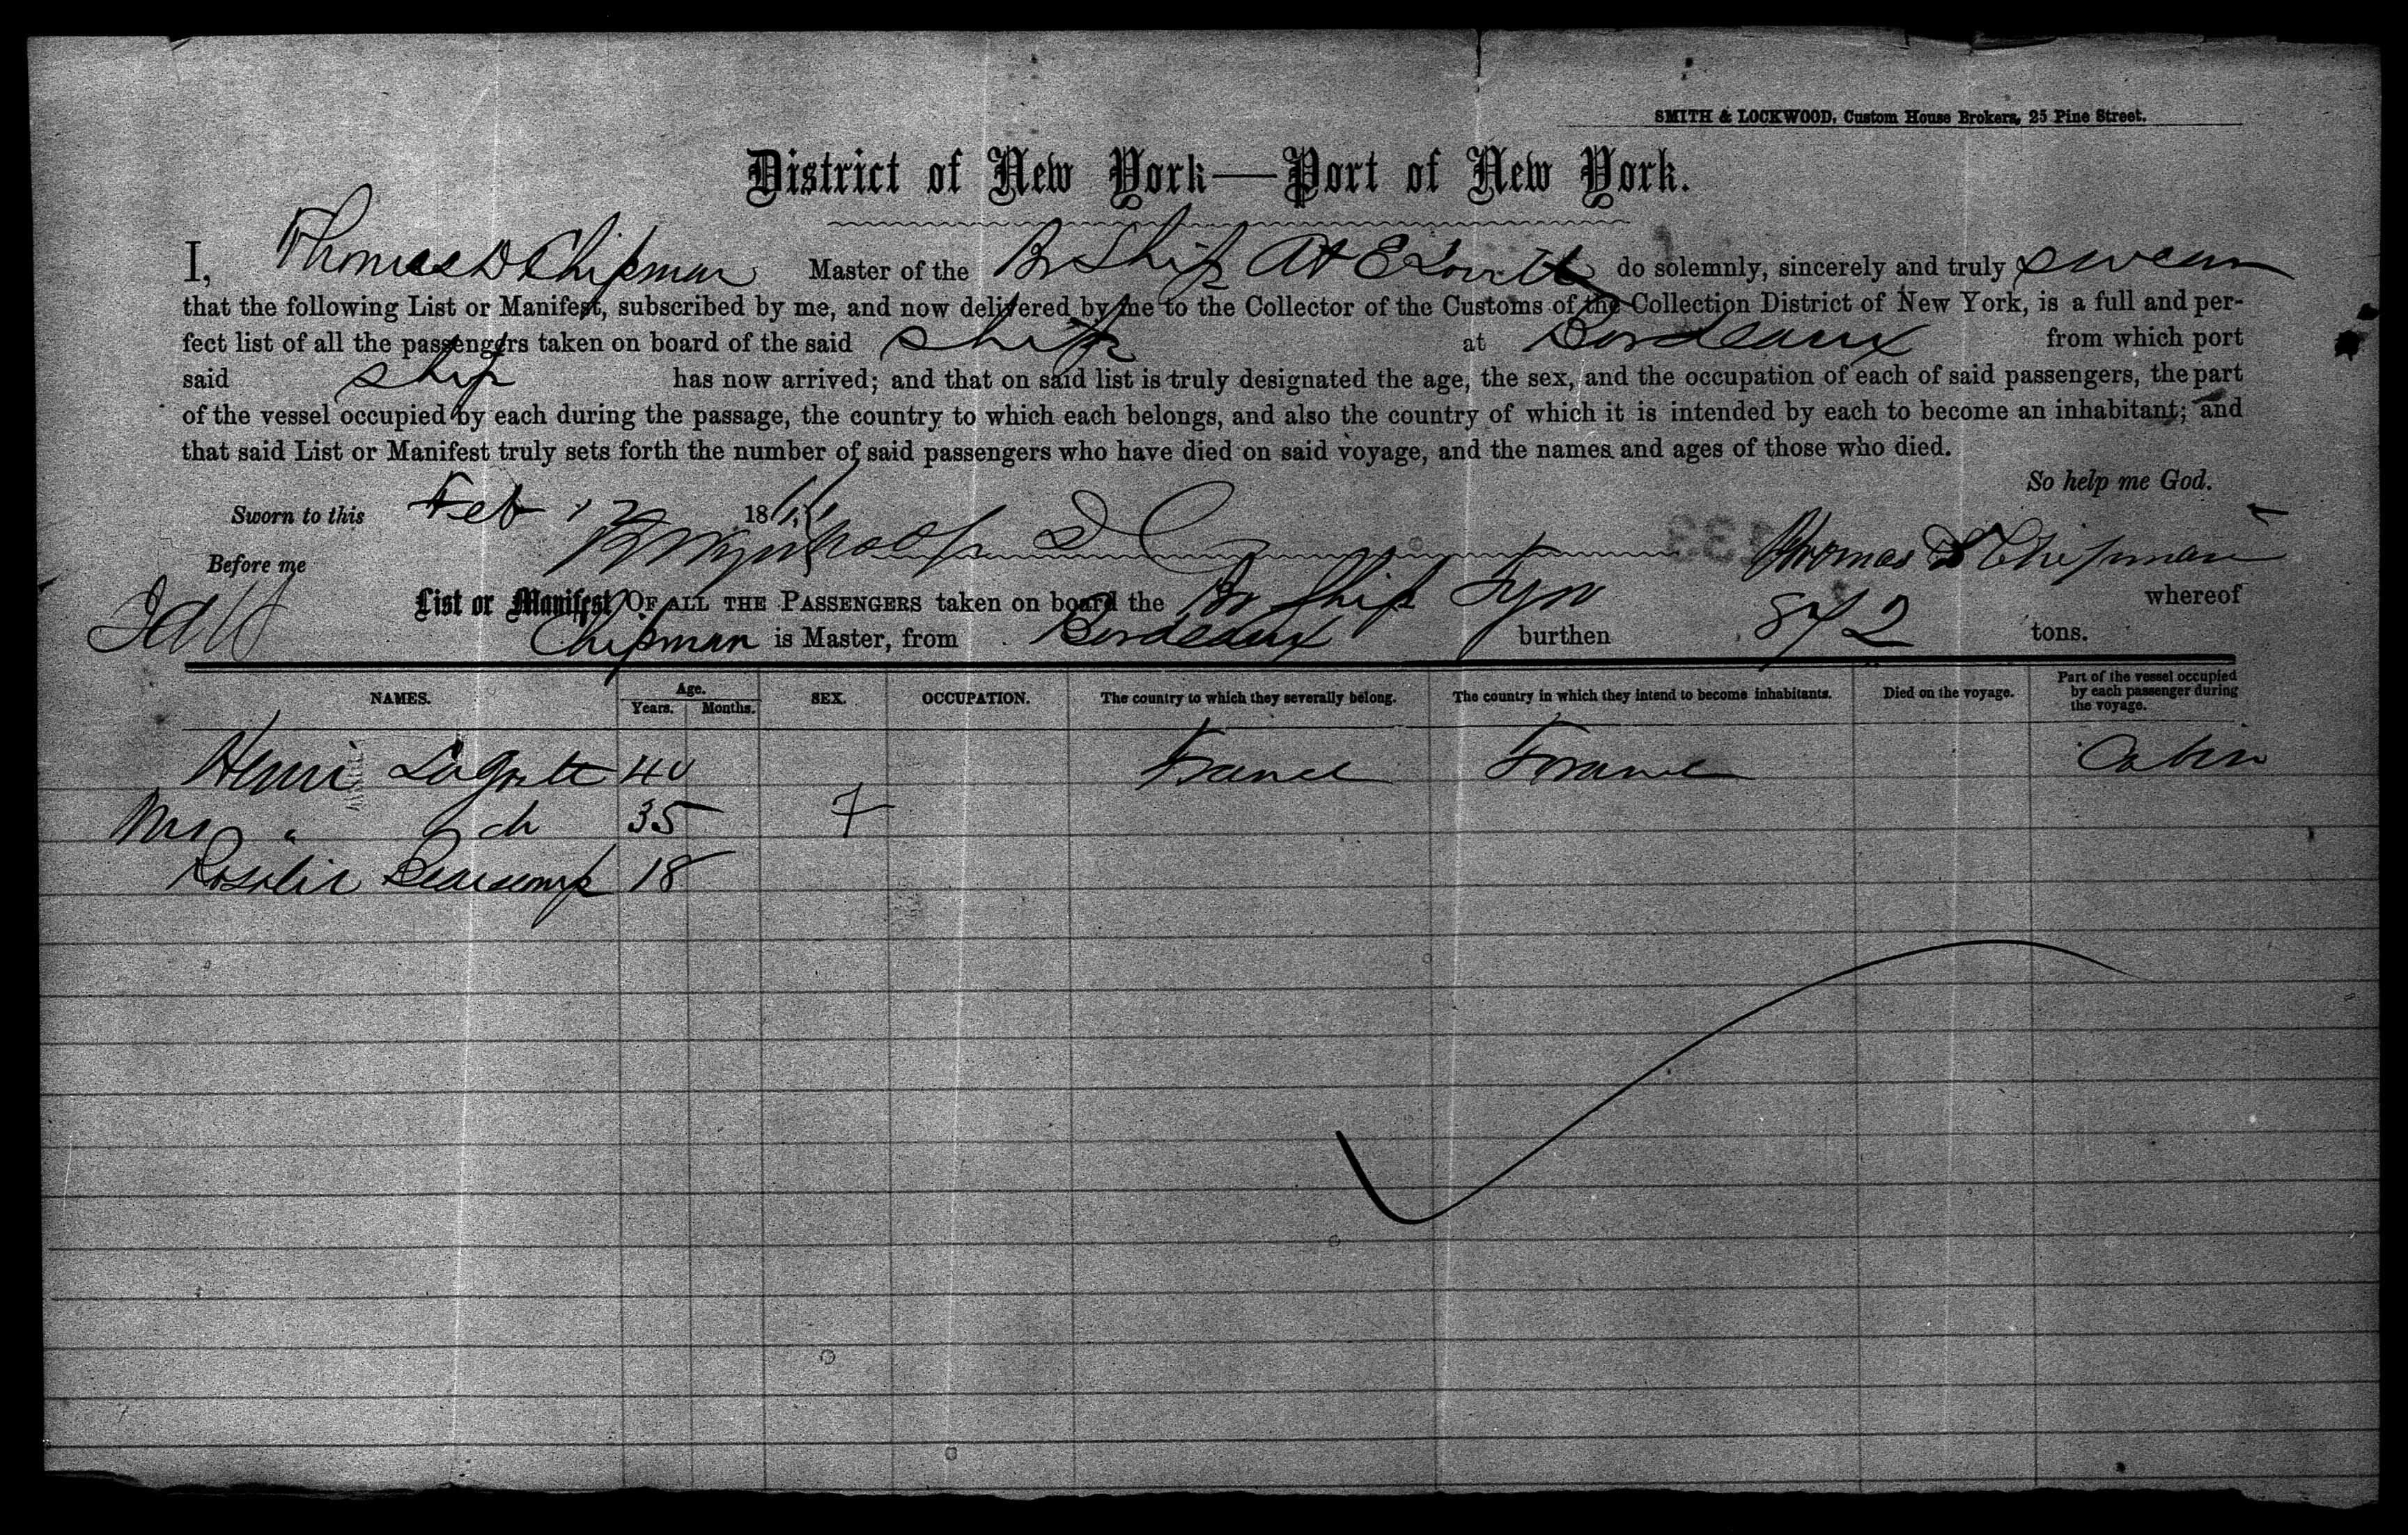 SMITH & LOCKWOOD, Custom House Brokers, 25 Pine Street.
District of New York—Port of New York.
I, Thomas D Chipman Master of the Br Ship do solemnly, sincerely and truly swear
that the following List or Manifest, subscribed by me, and now delivered by me to the Collector of the Customs of the Collection District of New York, is a full and per-
fect list of all the passengers taken on board of the said ship at Bordeaux from which port
said ship has now arrived; and that on said list is truly designated the age, the sex, and the occupation of each of said passengers, the part
of the vessel occupied by each during the passage, the country to which each belongs, and also the country of which it is intended by each to become an inhabitant; and
that said List or Manifest truly sets forth the number of said passengers who have died on said voyage, and the names and ages of those who died.
So help me God.
Sworn to this Feb 17 1866
Before me Thomas D Chipman
List or Manifest OF ALL THE PASSENGERS taken on board the Br Ship whereof
Chipman is Master, from Bordeaux burthen 872 tons.
NAMES. Age. Years. Months. SEX. OCCUPATION. The country to which they severally belong. The country in which they intend to become inhabitants. Died on the voyage. Part of the vessel occupied by each passenger during the voyage.
Henri 40 France France Cabin
Mrs " 35 f
Rosalie 18